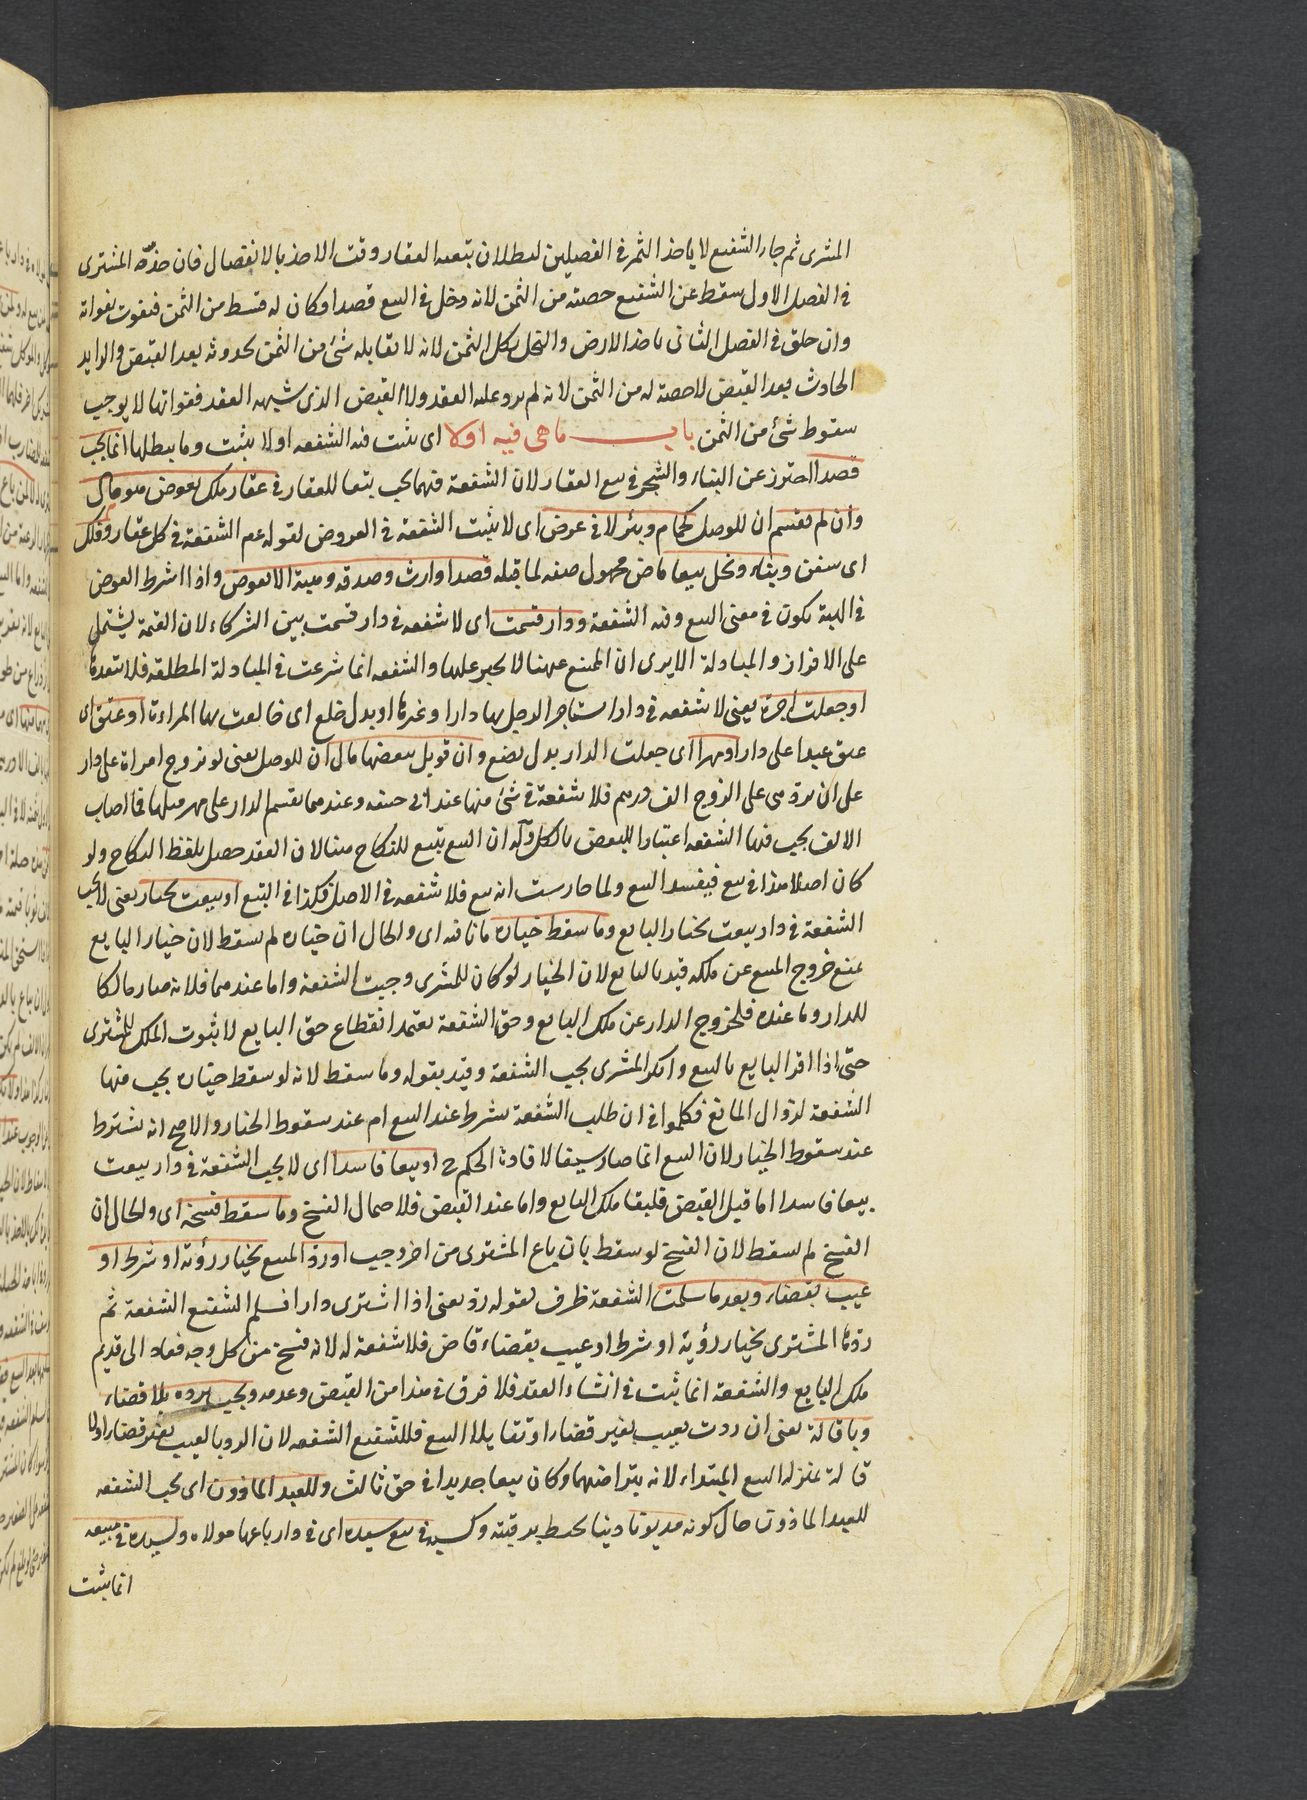 المشترى ثم جاء الشفيع لا ياخذ الثمر فى الفصلين لبطلان تبعية العقار وقت الاخذ بالانفصال فان جذّه المشترى
فى الفصل الاول سقط عن الشفيع حصته من الثمن لانه دخل فى البيع قصدا وكان له قسط من الثمن فيفوت بفواته
وان حلق فى الفصل الثانى ياخذ الارض والنخل بكل الثمن لانه لا يقابله شئ من الثمن لحدوثه بعد القبض والزايد
الحادث بعد القبض لا حصة له من الثمن لانه لم يرد عليه العقد ولا القبض الذى شبهه العقد ففواتها لا يوجب
سقوط شئ من الثمن باب ما هى فيه اولا اى يثبت فيه الشفعه اولا يثبت وما يبطلها انما يجب
قصدا احترز عن البناء والشجر فى بيع العقار لان الشفعة فيهما يجب تبعا للعقار فى عقار ملك بعوض هو مال
وان لم يقسم ان للوصل كحمام وبئر لا فى عرض اى لا يثبت الشفعة فى العروض لقوله عم الشفعة فى كل عقار وفلك
اى سفن وبناء ونخل بيعا ماض مجهول صفه لما قبله قصدا وارث وصدقه وهبة الا بعوض واذا اشرط العوض
فى الهبة يكون فى معنى البيع وفيه الشفعة ودار قسمت اى لا شفعه فى دار قسمت بين الشركاء لان القسمة يشتمل
على الافراز والمبادلة الا يرى ان الممتنع عنها لا يجبر عليها والشفعه انما شرعت فى المبادلة المطلقة فلا تتعدها
او جعلت اجرة يعنى لا شفعه فى دار استاجر الرجل بها دارا وغيرها او بدل خلع اى خالعت بها المراءة او عتق اى
عتق عبدا على دار او مهرا اى جعلت الدار بدل بضع وان قوبل ببعضها مال ان للوصل يعنى لو تزوج امراة على دار
على ان ترد هى على الزوج الف درهم فلا شفعة فى شئ منها عند ابى حنيفه وعندهما يقسم الدار على مهر مثلها فما اصاب
الالف يجب فيها الشفعه اعتبارا للبعض بالكل وله ان البيع يتبع للنكاح هنا لان العقد حصل بلفظ النكاح ولو
كان اصلا هذا فى بيع فيفسد البيع ولما صارت انه بيع فلا شفعه فى الاصل فكذا فى التبع او بيعت بخيار يعنى لا يجب
الشفعة فى دار بيعت بخيار البايع وما سقط خياره ما نافيه اى والحال ان خياره لم يسقط لان خيار البايع
يمنع خروج المبيع عن ملكه قيد بالبايع لان الخيار لو كان للمشترى وجبت الشفعة واما عندهما فلانه صار مالكا
للدار وما عنده فلخروج الدار عن ملك البايع وحق الشفعة يعتمد انقطاع حق البايع لا بثبوت الملك للمشترى
حتى اذا اقر البايع بالبيع وانكر المشترى يجب الشفعة وقيد بقوله وما سقط لانه لو سقط خياره يجب منها
الشفعة لزوال المانع فكلموا فى ان طلب الشفعة يشرط عند البيع ام عند سقوط الخيار والاصح انه يشترط
عند سقوط الخيار لان البيع انما صار سببا لافادة الحكم ح او بيعا فاسدا اى لا يجب الشفعة فى دار بيعت
بيعا فاسدا اما قبل القبض فلبقا ملك البايع واما عند القبض فلاحتمال الفسخ وما سقط فسخه اى والحال ان
الفسخ لم يسقط لان الفسخ لو سقط بان باع المشترى من اخر وجبت او رد المبيع بخيار رؤية او شرط او
عيب بقضاء وبعد ما سلمت الشفعة ظرف لقوله رد يعنى اذا اشترى دارا فسلم الشفيع الشفعة ثم
ردها المشترى بخيار رؤية او شرط او عيب بقضاء قاض فلا شفعة له لانه فسخ من كل وجه فعاد الى قديم
ملك البايع والشفعة انما يثبت فى انشاء العقد فلا فرق فى هذا من القبض وعدمه ويجب برده بلا قضاء
وباقالة يعنى ان ردت بعيب بغير قضاء او تقايلا البيع فللشفيع الشفعه لان الرد بالعيب بغير قضاء والا
قالة بمنزلة البيع المبتداء لانه بتراضيهما وكان بيعا جديدا فى حق ثالث وللعبد الماذون اى يجب الشفعه
للعبد الماذون حال كونه مديونا دينا يحيط برقبته وكسبه فى بيع سيده اى فى دار باعها مولاه ولسيده فى مبيعه
انما يثبت